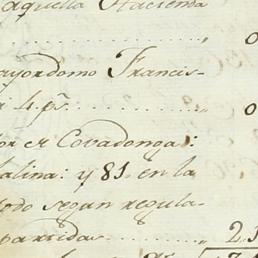 aquella Hacienda
0
ayordomo Francis-
a 4 ps. 0
or er Covadonga:
alina: y 81 en la
odo segun regula-
partidas 21